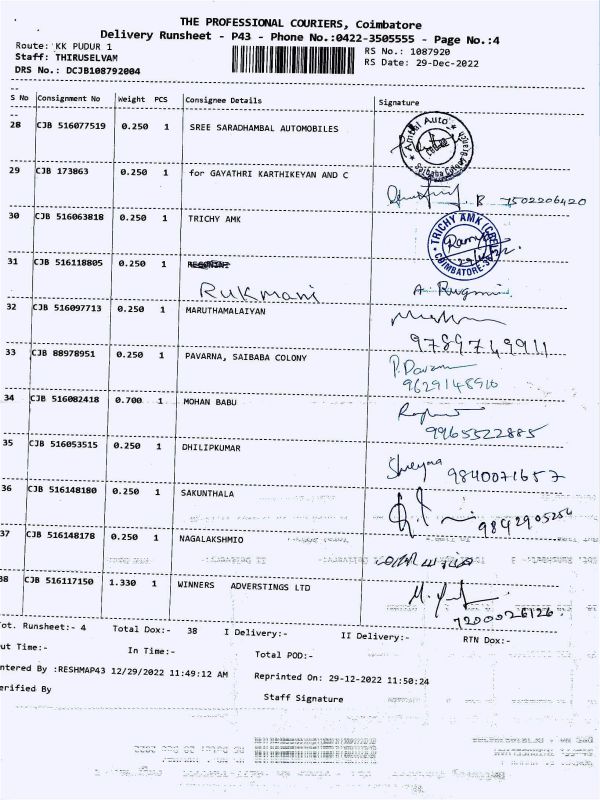 THE PROFESSIONAL COURIERS, Coimbatore
Delivery Runsheet - P43 - Phone No.:0422-3505555 - Page No.:4
Route: KK PUDUR 1
RS No.: 1087920
Staff: THIRUSELVAM
RS Date: 29-Dec-2022
DRS No.: DCJB108792004
S No Consignment No Weight PCS Consignee Details Signature
28 CJB 516077519 0.250 1 SREE SARADHAMBAL AUTOMOBILES
Ambal Auto
Saibaba Colony Branch
29 CJB 173863 0.250 1 for GAYATHRI KARTHIKEYAN AND C
7502206420
30 CJB 516063818 0.250 1 TRICHY AMK
TRICHY AMK (CBE)
COIMBATORE-38
31 CJB 516118805 0.250 1
Rukmani A. Rugmini
32 CJB 516097713 0.250 1 MARUTHAMALAIYAN
9789749911
33 CJB 88978951 0.250 1 PAVARNA, SAIBABA COLONY
9629148910
34 CJB 516082418 0.700 1 MOHAN BABU
9965522885
35 CJB 516053515 0.250 1 DHILIPKUMAR
Shreyna 9840071657
36 CJB 516148180 0.250 1 SAKUNTHALA
9842905254
37 CJB 516148178 0.250 1 NAGALAKSHMIO
38 CJB 516117150 1.330 1 WINNERS ADVERSTINGS LTD
7200026126
Tot. Runsheet:- 4 Total Dox:- 38 I Delivery:- II Delivery:- RTN Dox:-
Out Time:- In Time:- Total POD:-
Entered By :RESHMAP43 12/29/2022 11:49:12 AM Reprinted On: 29-12-2022 11:50:24
Verified By Staff Signature